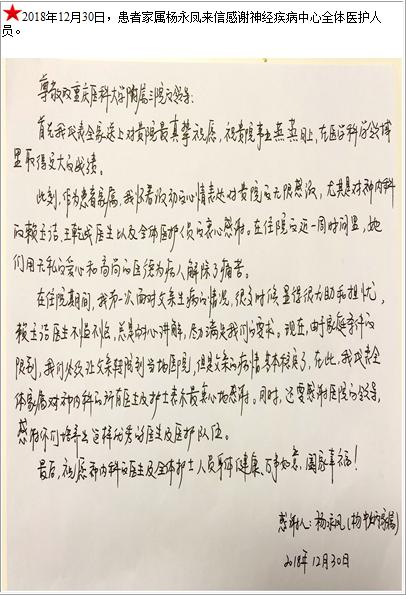 ★2018年12月30日，患者家属杨永凤来信感谢神经疾病中心全体医护人
员。
尊敬的重庆医科大学附属三院的领导：
首先我代表全家送上对贵院最真挚祝愿，祝贵院事业蒸蒸日上，在医学科学领域
里取得更大的成绩。
此刻，作为患者家属，我怀着激动的心情表达对贵院的无限感激，尤其是对神内科
的赖主治、王乾成医生以及全体医护人员的衷心感谢。在住院的近一周时间里，她
们用无私的爱心和高尚的医德为病人解除了痛苦。
在住院期间，我第一次面对父亲生病的情况，很多时候显得很无助和担忧，
赖主治医生不怕不倦，总是耐心讲解，尽力满足我们的要求。现在，由于家庭条件的
限制，我们必须让父亲转院到当地医院，但是父亲的病情基本稳定了，在此，我代表全
体家属对神内科的所有医生及护士表示最真心地感谢。同时，还要感谢医院的领导，
感谢你们培养出这样优秀的医生及医护队伍。
最后，祝愿神内科的医生及全体护士人员身体健康、万事如意，阖家幸福！
感谢人：杨永凤（杨 家属）
2018年12月30日